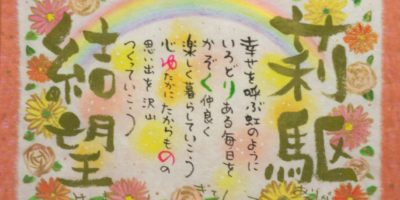 莉駆
幸せを呼ぶ虹のように
いろどりある毎日を
かぞく仲良く
楽しく暮らしていこう
心ゆたかにたからものの
思い出を沢山
つくっていこう
結望